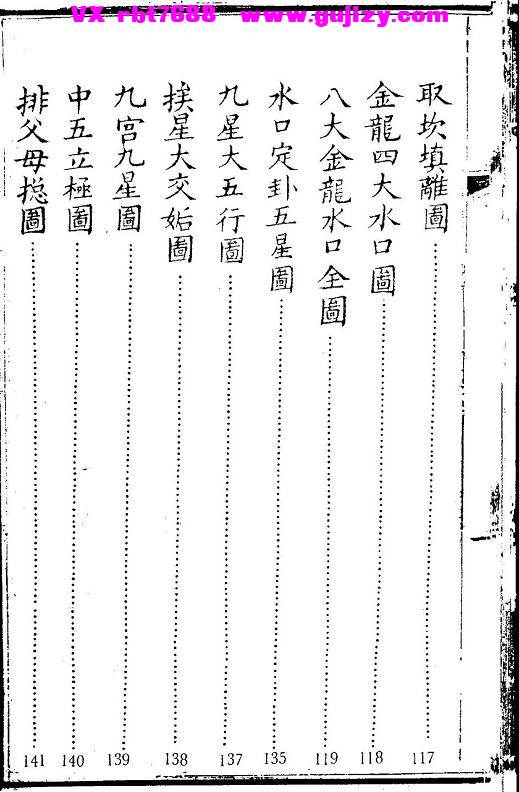 VX rbt7688 www.gujizy.com
取坎填離圖 117
金龍四大水口圖 118
八大金龍水口全圖 119
水口定卦五星圖 135
九星大五行圖 137
挨星大交姤圖 138
九宮九星圖 139
中五立極圖 140
排父母捴圖 141